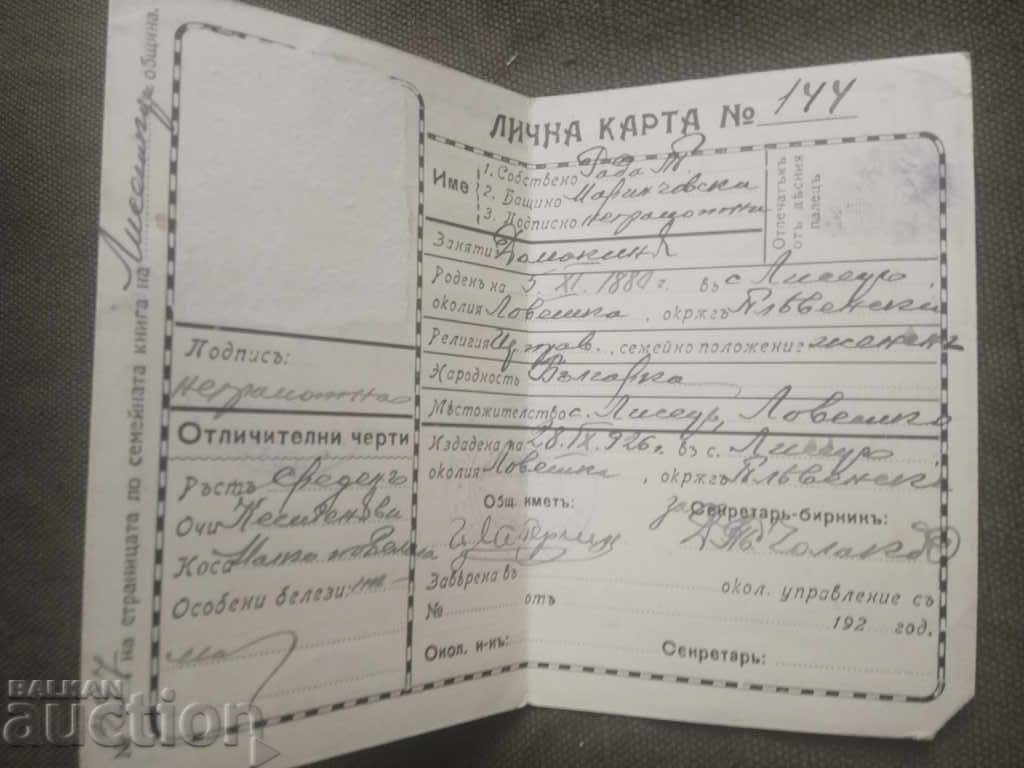 № на страницата по семейната книга на община.
Подписъ:
неграмотна
Отличителни черти
Ръстъ среденъ
Очи Кестеняви
Коса
Особени белези: ня-
ма
ЛИЧНА КАРТА № 144
Име
1. Собствено Рада
2. Бащино
3. Подписно неграмотна
Отпечатъкъ отъ дѣсния палецъ
Занятие Домакиня
Роденъ на 5. XI. 1880 г. въ с.
околия Ловешка, окрѫгъ Плѣвенски
Религия Изт. прав., семейно положение
Народность Българка
Мѣстожителство с. Ловешко
Издадена на 28. IX. 926 г. въ с.
околия Ловешка, окрѫгъ Плѣвенски
Общ. кметъ: Секретарь-бирникъ:
Завѣрена въ окол. управление съ
№ отъ 192 год.
Окол. н-къ: Секретарь:
BALKAN
auction